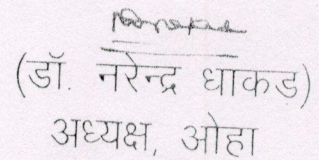 (डॉ. नरेन्द्र धाकड)
अध्यक्ष, ओहा